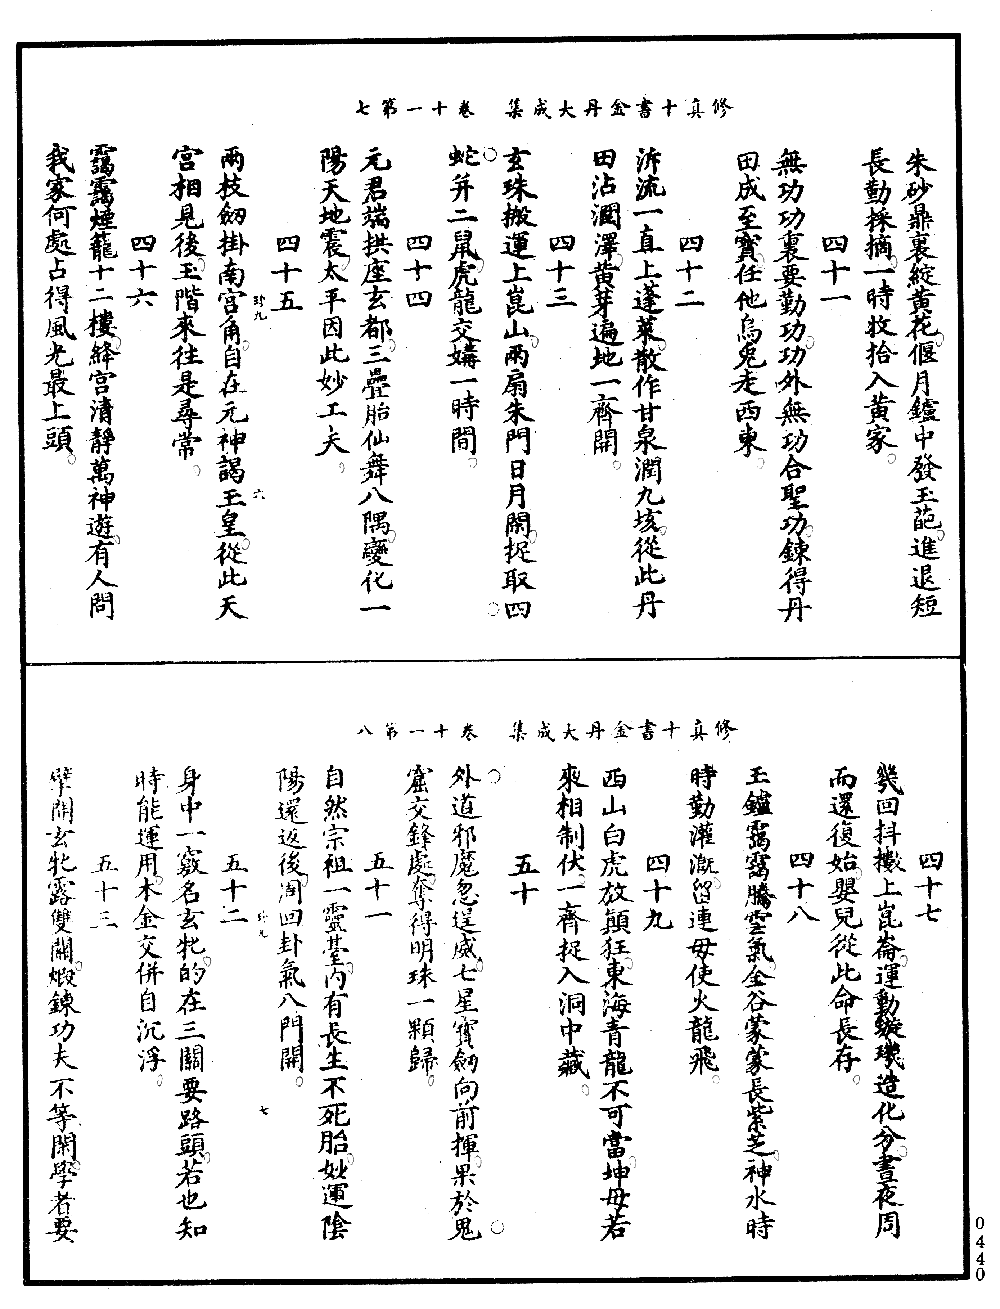 修真十書金丹大成集　卷十一第七
朱砂鼎裏綻黃花偃月鑪中發玉葩進退短
長勤採摘一時收拾入黃家
四十一
無功功裏要勤功功外無功合聖功鍊得丹
田成至寶任他烏兔走西東
四十二
泝流一直上蓬萊散作甘泉潤九垓從此丹
田沾潤澤黃芽遍地一齊開
四十三
玄珠搬運上崑山兩扇朱門日月關捉取四
蛇并二鼠虎龍交媾一時間
四十四
元君端拱座玄都三疊胎仙舞八隅變化一
陽天地震太平因此妙工夫
四十五
珍九
六
兩枝劒掛南宫角自在元神謁玉皇從此天
宫相見後玉階來往是尋常
四十六
靄靄煙籠十二樓絳宫清靜萬神遊有人問
我家何處占得風光最上頭
修真十書金丹大成集　卷十一第八
四十七
幾回抖擻上崑崙運動璇璣造化分晝夜周
而還復始嬰兒從此命長存
四十八
玉鑪靄靄騰雲氣金谷蒙蒙長紫芝神水時
時勤灌溉留連母使火龍飛
四十九
西山白虎放顛狂東海青龍不可當坤母若
來相制伏一齊捉入洞中藏
五十
外道邪魔忽逞威七星寶劒向前揮果於鬼
窟交鋒處奪得明珠一顆歸
五十一
自然宗祖一靈臺内有長生不死胎妙運陰
陽還返後周回卦氣八門開
五十二
珍九
七
身中一竅名玄牝的在三關要路頭若也知
時能運用木金交併自沉浮
五十三
擘開玄牝露雙關煅鍊功夫不等閑學者要
0440